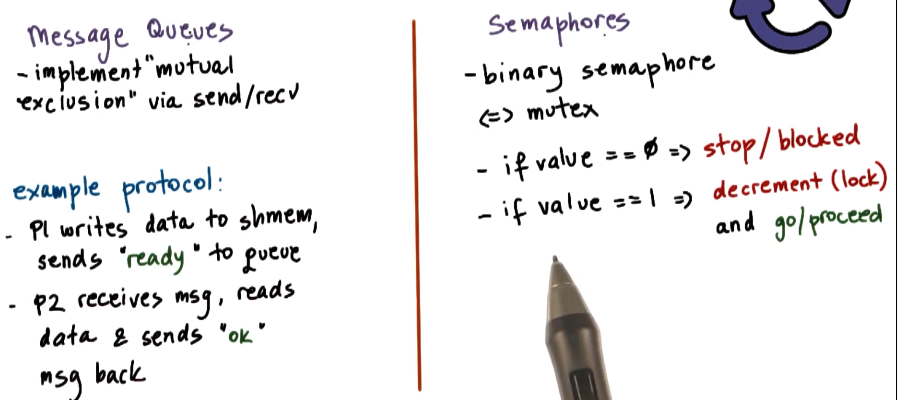 Message Queues
- implement "mutual
exclusion" via send/recv
example protocol:
- P1 writes data to shmem,
sends "ready" to queue
- P2 receives msg, reads
data & sends "ok"
msg back
Semaphores
- binary semaphore
<=> mutex
- if value == 0 => stop/blocked
- if value == 1 => decrement (lock)
and go/proceed